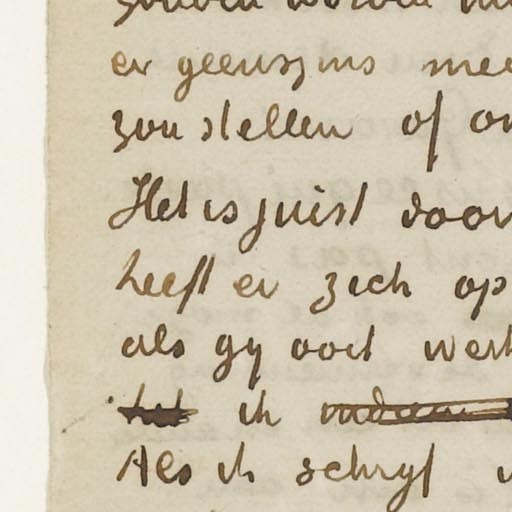 er geenszins mee
zou stellen of on
Het is juist door
heeft er zich op
als gy ooit werk
ik
Als ik schryf